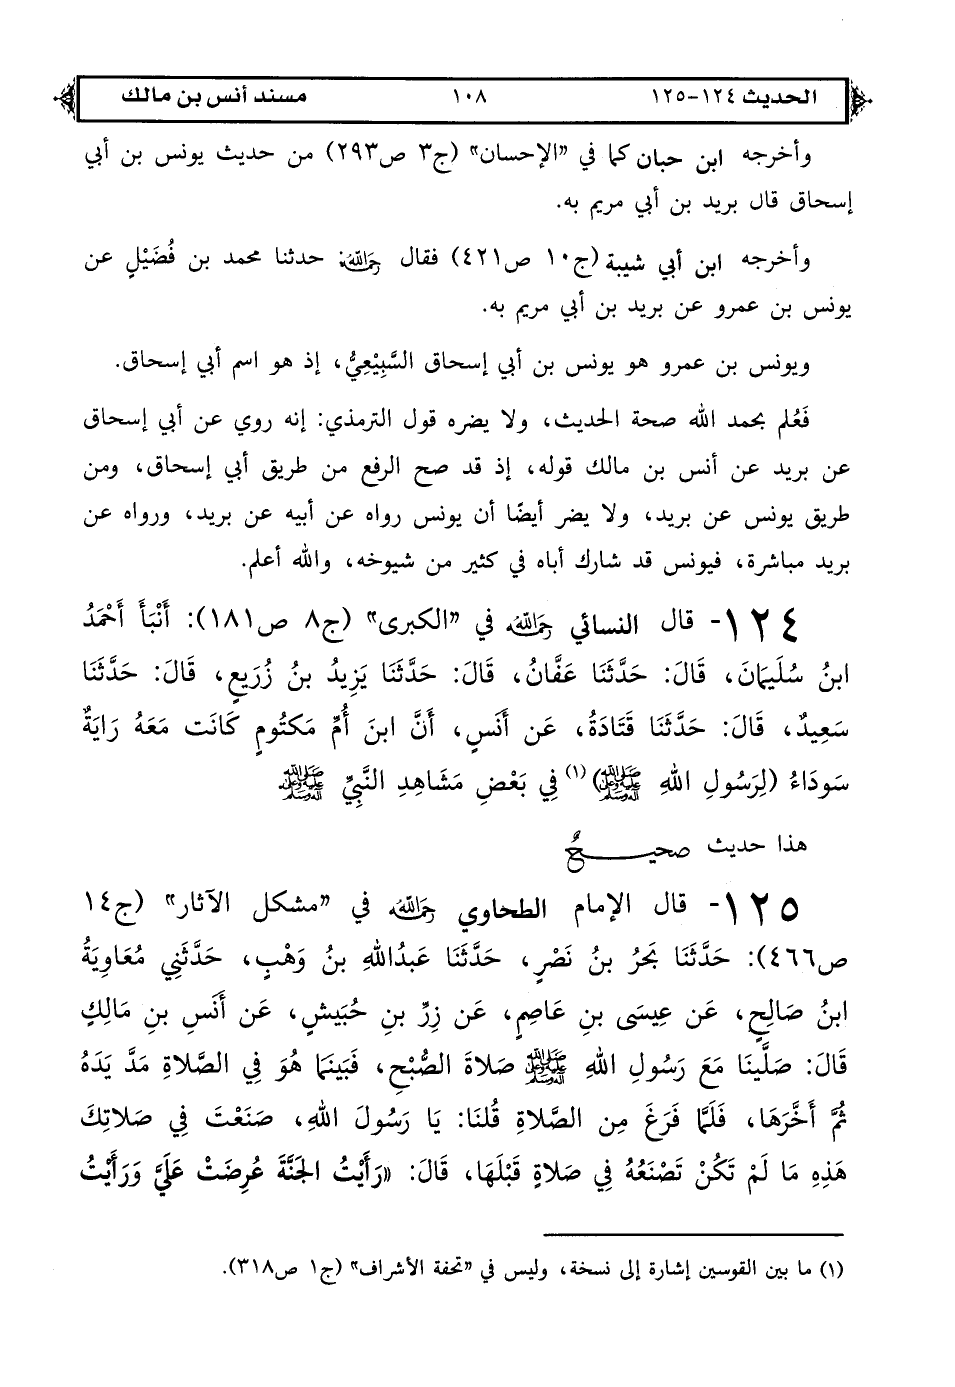 الحديث ١٢٤-١٢٥ ١٠٨ مسند أنس بن مالك
وأخرجه ابن حبان كما في "الإحسان" (ج٣ ص٢٩٣) من حديث يونس بن أبي
إسحاق قال بريد بن أبي مريم به.
وأخرجه ابن أبي شيبة (ج١٠ ص٤٢١) فقال رَحِمَهُ اللهُ: حدثنا محمد بن فُضَيْلٍ عن
يونس بن عمرو عن بريد بن أبي مريم به.
ويونس بن عمرو هو يونس بن أبي إسحاق السَّبِيْعِيُّ، إذ هو اسم أبي إسحاق.
فَعُلم بحمد الله صحة الحديث، ولا يضره قول الترمذي: إنه روي عن أبي إسحاق
عن بريد عن أنس بن مالك قوله، إذ قد صح الرفع من طريق أبي إسحاق، ومن
طريق يونس عن بريد، ولا يضر أيضًا أن يونس رواه عن أبيه عن بريد، ورواه عن
بريد مباشرة، فيونس قد شارك أباه في كثير من شيوخه، والله أعلم.
١٢٤- قال النسائي رَحِمَهُ اللهُ في "الكبرى" (ج٨ ص١٨١): أَنْبَأَ أَحْمَدُ
ابنُ سُلَيمَانَ، قَالَ: حَدَّثَنَا عَفَّانُ، قَالَ: حَدَّثَنَا يَزِيدُ بنُ زُرَيعٍ، قَالَ: حَدَّثَنَا
سَعِيدٌ، قَالَ: حَدَّثَنَا قَتَادَةُ، عَن أَنَسٍ، أَنَّ ابنَ أُمِّ مَكتُومٍ كَانَت مَعَهُ رَايَةٌ
سَودَاءُ (لِرَسُولِ اللهِ ﷺ)(١) فِي بَعْضِ مَشَاهِدِ النَّبِيِّ ﷺ
هذا حديث صحيحٌ
١٢٥- قال الإمام الطحاوي رَحِمَهُ اللهُ في "مشكل الآثار" (ج١٤
ص٤٦٦): حَدَّثَنَا بَحرُ بنُ نَصْرٍ، حَدَّثَنَا عَبدُاللهِ بنُ وَهْبٍ، حَدَّثَنِي مُعَاوِيَةُ
ابنُ صَالِحٍ، عَن عِيسَى بنِ عَاصِمٍ، عَن زِرِّ بنِ حُبَيشٍ، عَن أَنَسِ بنِ مَالِكٍ
قَالَ: صَلَّينَا مَعَ رَسُولِ اللهِ ﷺ صَلاةَ الصُّبْحِ، فَبَينَمَا هُوَ فِي الصَّلاةِ مَدَّ يَدَهُ
ثُمَّ أَخَّرَهَا، فَلَمَّا فَرَغَ مِن الصَّلاةِ قُلنَا: يَا رَسُولَ اللهِ، صَنَعْتَ فِي صَلاتِكَ
هَذِهِ مَا لَمْ تَكُنْ تَصْنَعُهُ فِي صَلاةٍ قَبْلَهَا، قَالَ: «رَأَيْتُ الجَنَّةَ عُرِضَتْ عَلَيَّ وَرَأَيْتُ
(١) ما بين القوسين إشارة إلى نسخة، وليس في "تحفة الأشراف" (ج١ ص٣١٨).